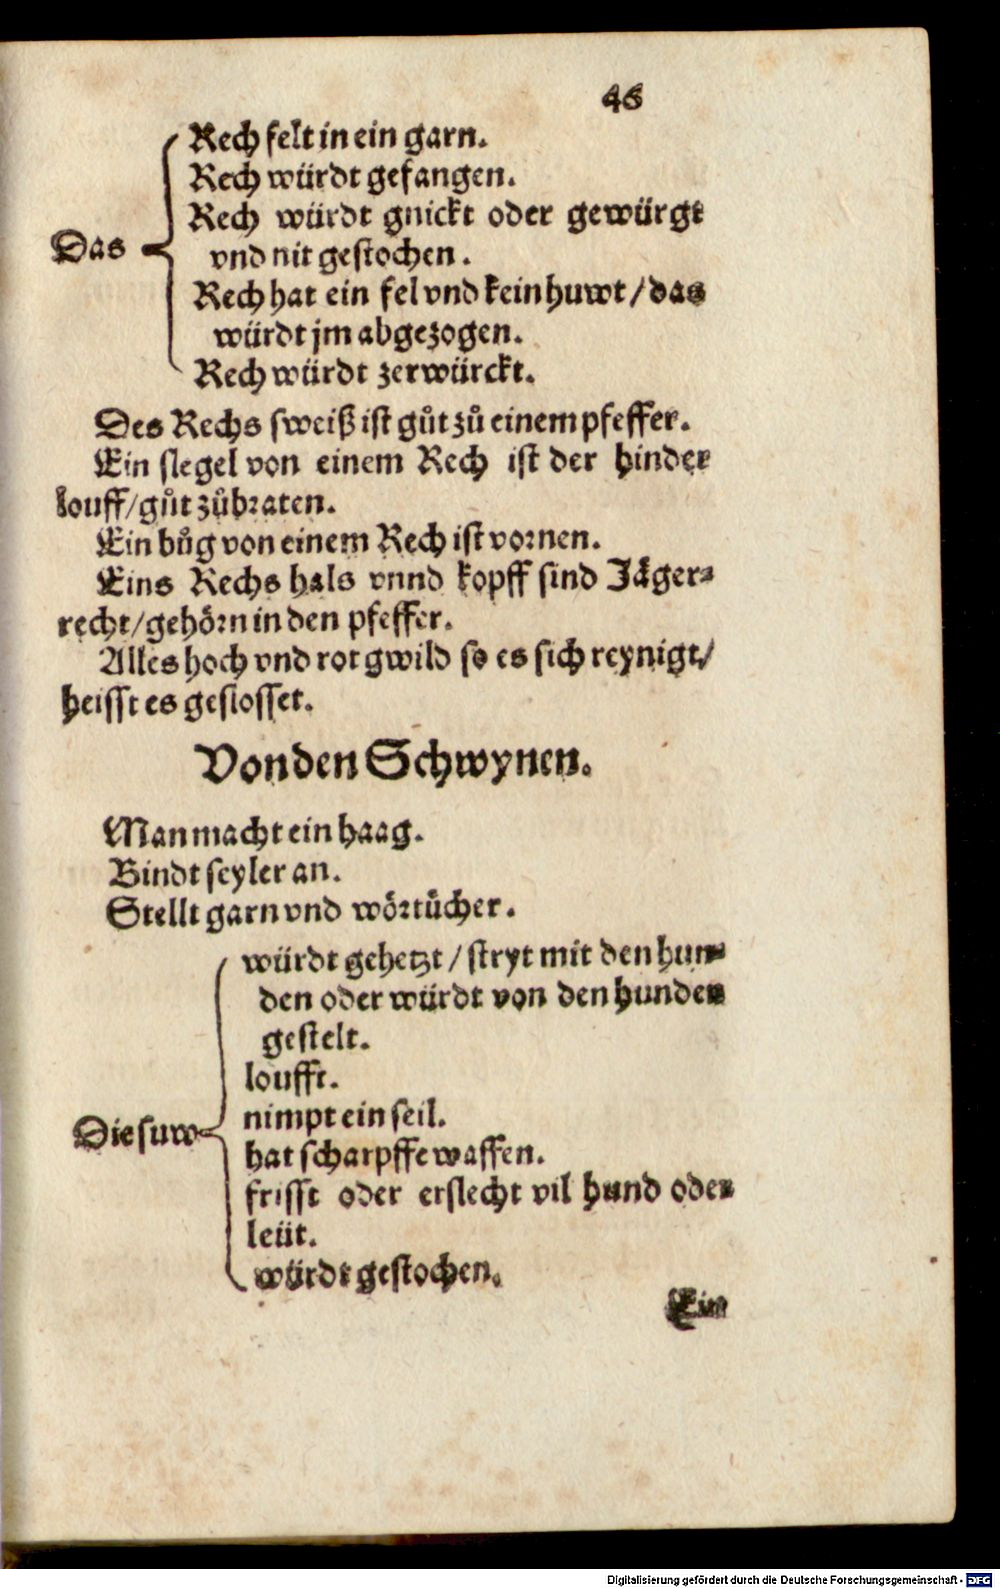 46
Rech felt in ein garn.
Rech würdt gefangen.
Rech würdt gnickt oder gewürgt
Das
vnd nit gestochen.
Rech hat ein fel vnd kein huwt / das
würdt jm abgezogen.
Rech würdt zerwürckt.
Des Rechs sweiß ist gůt zů einem pfeffer.
Ein slegel von einem Rech ist der hinder
louff / gůt zů braten.
Ein bůg von einem Rech ist vornen.
Eins Rechs hals vnnd kopff sind Jäger-
recht / gehörn in den pfeffer.
Alles hoch vnd rot gwild so es sich reynigt /
heisst es geslosset.
Von den Schwynen.
Man macht ein haag.
Bindt seyler an.
Stellt garn vnd wörtücher.
würdt gehetzt / stryt mit den hun-
den oder würdt von den hunden
gestelt.
loufft.
nimpt ein seil.
Die suw
hat scharpffe waffen.
frisst oder erslecht vil hund oder
leüt.
würdt gestochen.
Ein
Digitalisierung gefördert durch die Deutsche Forschungsgemeinschaft - DFG